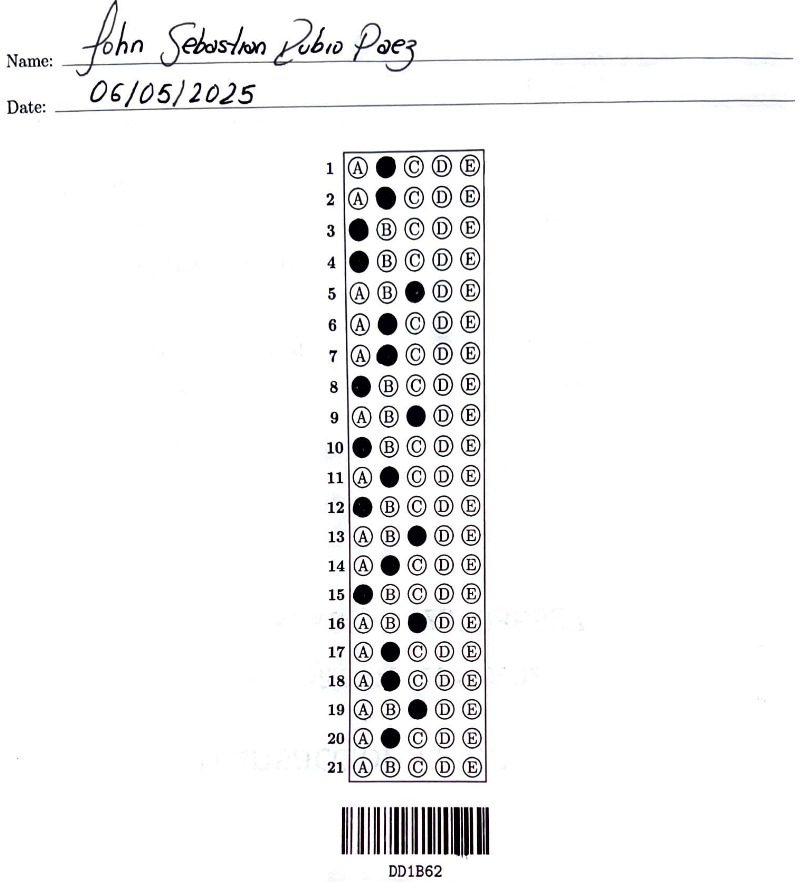 Name: John Sebastian Rubio Paez
Date: 06/05/2025
1 A C D E
2 A C D E
3 B C D E
4 B C D E
5 A B D E
6 A C D E
7 A C D E
8 B C D E
9 A B D E
10 B C D E
11 A C D E
12 B C D E
13 A B D E
14 A C D E
15 B C D E
16 A B D E
17 A C D E
18 A C D E
19 A B D E
20 A C D E
21 A B C D E
DD1B62